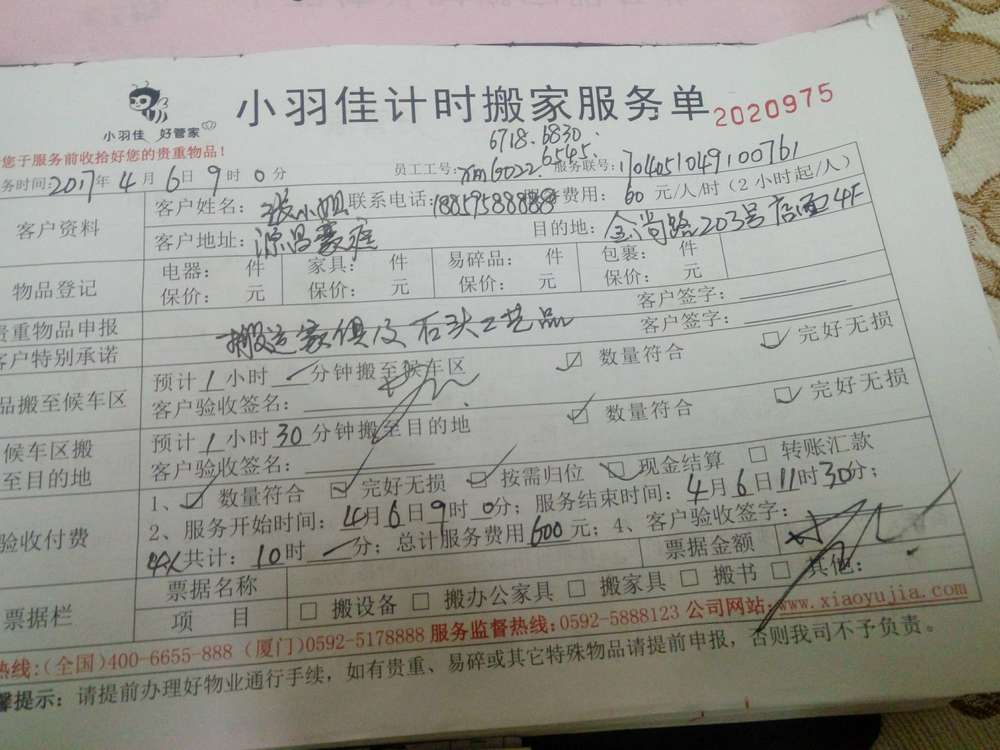 小羽佳 好管家
小羽佳计时搬家服务单 2020975
您于服务前收拾好您的贵重物品！
6718.6830.
务时间：2017年4月6日9时0分 员工工号：xm6022 6545. 服务联号：1704051049100761
客户资料 客户姓名：张小姐 联系电话：18859588888 费用：60元/人/时（2小时起/人）
客户地址：源昌豪庭 目的地：金尚路203号店面4F
物品登记 电器： 件 家具： 件 易碎品： 件 包裹： 件
保价： 元 保价： 元 保价： 元 保价： 元
贵重物品申报 客户签字：
客户特别承诺 搬运家俱及石头工艺品 客户签字：
品搬至候车区 预计1小时 分钟搬至候车区 ☑ 数量符合 ☑ 完好无损
客户验收签名：
候车区搬至目的地 预计1小时30分钟搬至目的地 ☑ 数量符合 ☑ 完好无损
客户验收签名：
验收付费 1、☑ 数量符合 ☑ 完好无损 ☑ 按需归位 ☑ 现金结算 □ 转账汇款
2、服务开始时间：4月6日9时0分；服务结束时间：4月6日11时30分；
4人共计：10时 分；总计服务费用600元；4、客户验收签字：
票据栏 票据名称 票据金额
项 目 □ 搬设备 □ 搬办公家具 □ 搬家具 □ 搬书 □ 其他：
热线：(全国)400-6655-888 (厦门)0592-5178888 服务监督热线：0592-5888123 公司网站：www.xiaoyujia.com
馨提示：请提前办理好物业通行手续，如有贵重、易碎或其它特殊物品请提前申报，否则我司不予负责。